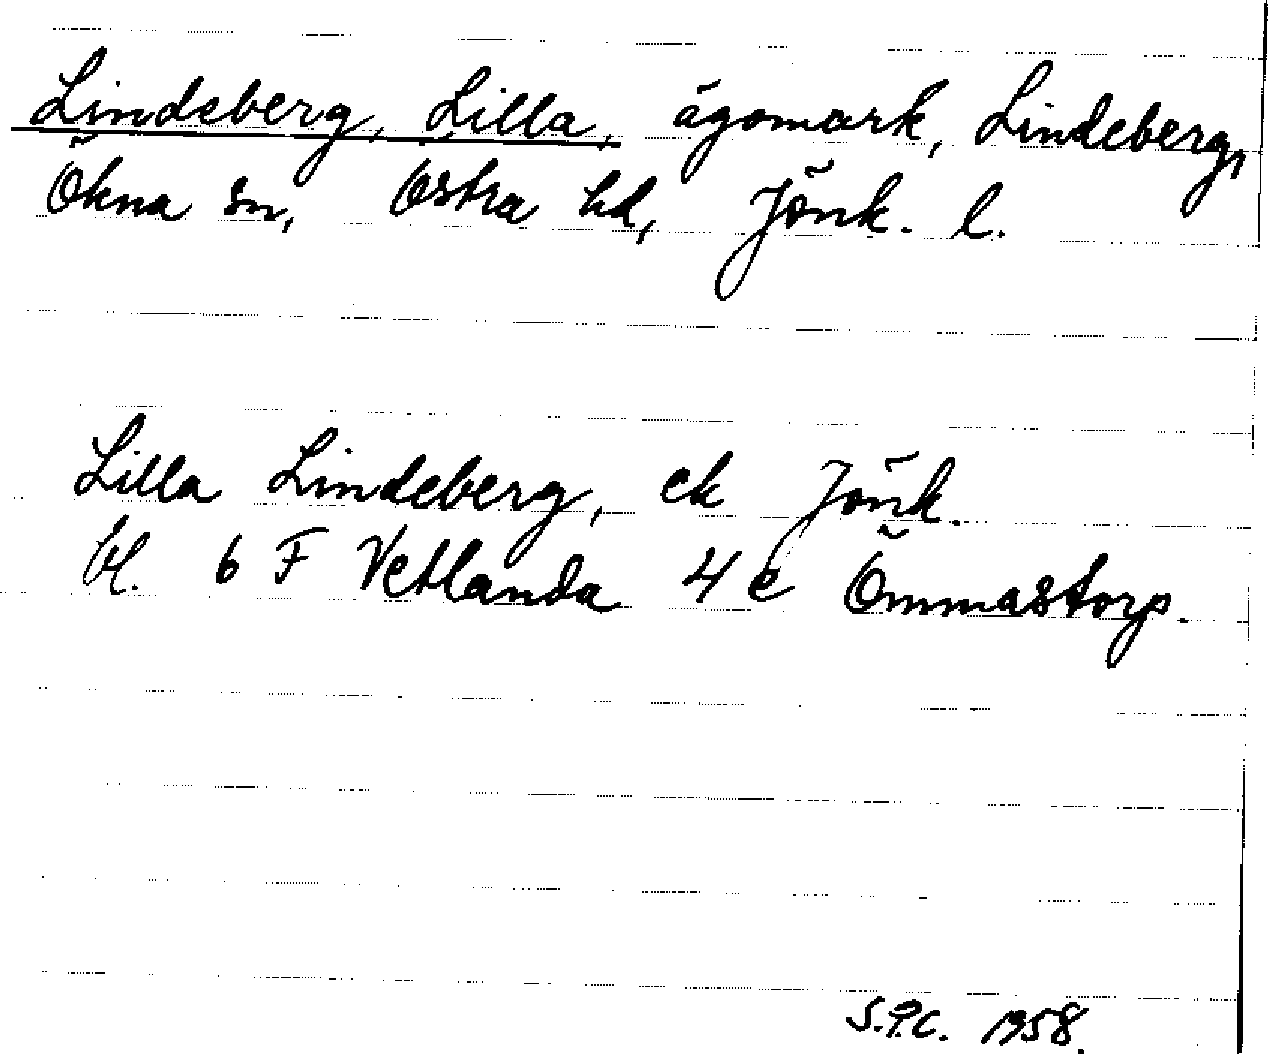 Lindeberg, Lilla, ägomark, Lindeberg,
Ökna sn, Östra hd, Jönk. l.
Lilla Lindeberg, ek Jönk.
bl. 6 F Vetlanda 4 e Ömmastorp.
S.P.C. 1958.